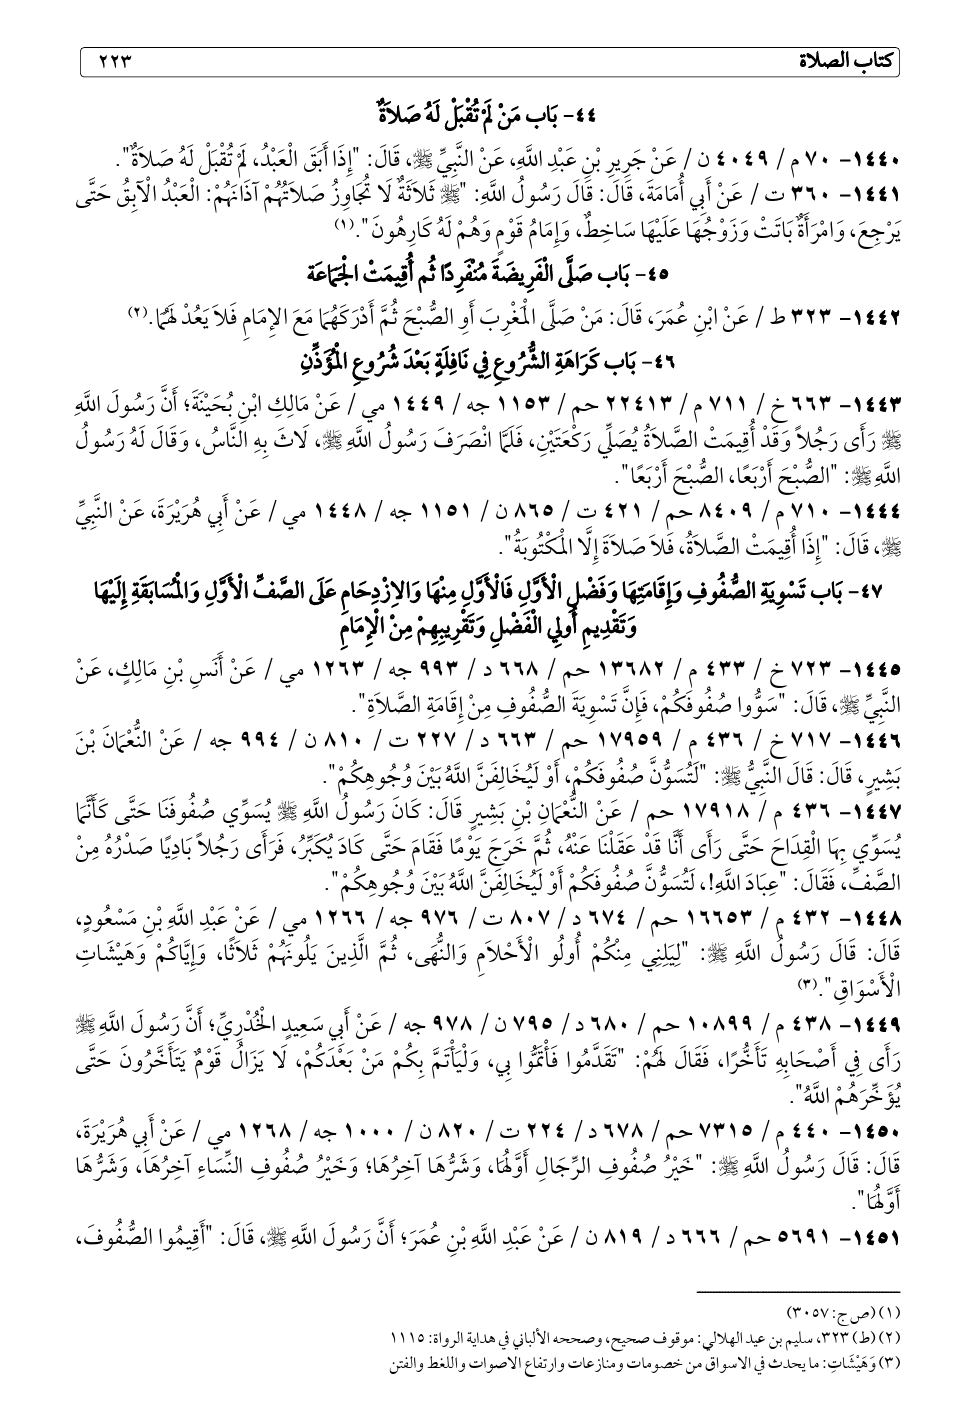 كتاب الصلاة ٢٢٣
٤٤- بَاب مَنْ لَمْ تُقْبَلْ لَهُ صَلاَةٌ
١٤٤٠- ٧٠ م/ ٤٠٤٩ ن/ عَنْ جَرِيرِ بْنِ عَبْدِ اللَّهِ، عَنْ النَّبِيِّ ﷺ، قَالَ: "إِذَا أَبَقَ الْعَبْدُ، لَمْ تُقْبَلْ لَهُ صَلاَةٌ".
١٤٤١- ٣٦٠ ت/ عَنْ أَبِي أُمَامَةَ، قَالَ: قَالَ رَسُولُ اللَّهِ: "ﷺ ثَلاَثَةٌ لَا تُجَاوِزُ صَلاَتُهُمْ آذَانَهُمْ: الْعَبْدُ الْآبِقُ حَتَّى
يَرْجِعَ، وَامْرَأَةٌ بَاتَتْ وَزَوْجُهَا عَلَيْهَا سَاخِطٌ، وَإِمَامُ قَوْمٍ وَهُمْ لَهُ كَارِهُونَ".(١)
٤٥- بَاب صَلَّى الْفَرِيضَةَ مُنْفَرِدًا ثُم أُقِيمَتْ الْجَمَاعَة
١٤٤٢- ٣٢٣ ط/ عَنْ ابْنِ عُمَرَ، قَالَ: مَنْ صَلَّى الْمَغْرِبَ أَوِ الصُّبْحَ ثُمَّ أَدْرَكَهُمَا مَعَ الإِمَامِ فَلاَ يَعُدْ لَهُمَا.(٢)
٤٦- بَاب كَرَاهَةِ الشُّرُوعِ فِي نَافِلَةٍ بَعْدَ شُرُوعِ الْمُؤَذِّنِ
١٤٤٣- ٦٦٣ خ/ ٧١١ م/ ٢٢٤١٣ حم/ ١١٥٣ جه/ ١٤٤٩ مي/ عَنْ مَالِكِ ابْنِ بُحَيْنَةَ؛ أَنَّ رَسُولَ اللَّهِ
ﷺ رَأَى رَجُلاً وَقَدْ أُقِيمَتْ الصَّلاَةُ يُصَلِّي رَكْعَتَيْنِ، فَلَمَّا انْصَرَفَ رَسُولُ اللَّهِ ﷺ، لَاثَ بِهِ النَّاسُ، وَقَالَ لَهُ رَسُولُ
اللَّهِ ﷺ: "الصُّبْحَ أَرْبَعًا، الصُّبْحَ أَرْبَعًا".
١٤٤٤- ٧١٠ م/ ٨٤٠٩ حم/ ٤٢١ ت/ ٨٦٥ ن/ ١١٥١ جه/ ١٤٤٨ مي/ عَنْ أَبِي هُرَيْرَةَ، عَنْ النَّبِيِّ
ﷺ، قَالَ: "إِذَا أُقِيمَتْ الصَّلاَةُ، فَلاَ صَلاَةَ إِلَّا الْمَكْتُوبَةُ".
٤٧- بَاب تَسْوِيَةِ الصُّفُوفِ وَإِقَامَتِهَا وَفَضْلِ الْأَوَّلِ فَالْأَوَّلِ مِنْهَا وَالِازْدِحَامِ عَلَى الصَّفِّ الْأَوَّلِ وَالْمُسَابَقَةِ إِلَيْهَا
وَتَقْدِيمِ أُولِي الْفَضْلِ وَتَقْرِيبِهِمْ مِنْ الْإِمَامِ
١٤٤٥- ٧٢٣ خ/ ٤٣٣ م/ ١٣٦٨٢ حم/ ٦٦٨ د/ ٩٩٣ جه/ ١٢٦٣ مي/ عَنْ أَنَسِ بْنِ مَالِكٍ، عَنْ
النَّبِيِّ ﷺ، قَالَ: "سَوُّوا صُفُوفَكُمْ، فَإِنَّ تَسْوِيَةَ الصُّفُوفِ مِنْ إِقَامَةِ الصَّلاَةِ".
١٤٤٦- ٧١٧ خ/ ٤٣٦ م/ ١٧٩٥٩ حم/ ٦٦٣ د/ ٢٢٧ ت/ ٨١٠ ن/ ٩٩٤ جه/ عَنْ النُّعْمَانَ بْنَ
بَشِيرٍ، قَالَ: قَالَ النَّبِيُّ ﷺ: "لَتُسَوُّنَّ صُفُوفَكُمْ، أَوْ لَيُخَالِفَنَّ اللَّهُ بَيْنَ وُجُوهِكُمْ".
١٤٤٧- ٤٣٦ م/ ١٧٩١٨ حم/ عَنْ النُّعْمَانِ بْنِ بَشِيرٍ قَالَ: كَانَ رَسُولُ اللَّهِ ﷺ يُسَوِّي صُفُوفَنَا حَتَّى كَأَنَّمَا
يُسَوِّي بِهَا الْقِدَاحَ حَتَّى رَأَى أَنَّا قَدْ عَقَلْنَا عَنْهُ، ثُمَّ خَرَجَ يَوْمًا فَقَامَ حَتَّى كَادَ يُكَبِّرُ، فَرَأَى رَجُلاً بَادِيًا صَدْرُهُ مِنْ
الصَّفِّ، فَقَالَ: "عِبَادَ اللَّهِ!، لَتُسَوُّنَّ صُفُوفَكُمْ أَوْ لَيُخَالِفَنَّ اللَّهُ بَيْنَ وُجُوهِكُمْ".
١٤٤٨- ٤٣٢ م/ ١٦٦٥٣ حم/ ٦٧٤ د/ ٨٠٧ ت/ ٩٧٦ جه/ ١٢٦٦ مي/ عَنْ عَبْدِ اللَّهِ بْنِ مَسْعُودٍ،
قَالَ: قَالَ رَسُولُ اللَّهِ ﷺ: "لِيَلِنِي مِنْكُمْ أُولُو الْأَحْلَامِ وَالنُّهَى، ثُمَّ الَّذِينَ يَلُونَهُمْ ثَلاَثًا، وَإِيَّاكُمْ وَهَيْشَاتِ
الْأَسْوَاقِ".(٣)
١٤٤٩- ٤٣٨ م/ ١٠٨٩٩ حم/ ٦٨٠ د/ ٧٩٥ ن/ ٩٧٨ جه/ عَنْ أَبِي سَعِيدٍ الْخُدْرِيِّ؛ أَنَّ رَسُولَ اللَّهِ ﷺ
رَأَى فِي أَصْحَابِهِ تَأَخُّرًا، فَقَالَ لَهُمْ: "تَقَدَّمُوا فَأْتَمُّوا بِي، وَلْيَأْتَمَّ بِكُمْ مَنْ بَعْدَكُمْ، لَا يَزَالُ قَوْمٌ يَتَأَخَّرُونَ حَتَّى
يُؤَخِّرَهُمْ اللَّهُ".
١٤٥٠- ٤٤٠ م/ ٧٣١٥ حم/ ٦٧٨ د/ ٢٢٤ ت/ ٨٢٠ ن/ ١٠٠٠ جه/ ١٢٦٨ مي/ عَنْ أَبِي هُرَيْرَةَ،
قَالَ: قَالَ رَسُولُ اللَّهِ ﷺ: "خَيْرُ صُفُوفِ الرِّجَالِ أَوَّلُهَا، وَشَرُّهَا آخِرُهَا؛ وَخَيْرُ صُفُوفِ النِّسَاءِ آخِرُهَا، وَشَرُّهَا
أَوَّلُهَا".
١٤٥١- ٥٦٩١ حم/ ٦٦٦ د/ ٨١٩ ن/ عَنْ عَبْدِ اللَّهِ بْنِ عُمَرَ؛ أَنَّ رَسُولَ اللَّهِ ﷺ، قَالَ: "أَقِيمُوا الصُّفُوفَ،
(١) (ص ج: ٣٠٥٧)
(٢) (ط) ٣٢٣، سليم بن عيد الهلالي: موقوف صحيح، وصححه الألباني في هداية الرواة: ١١١٥
(٣) وَهَيْشَاتِ: ما يحدث في الاسواق من خصومات ومنازعات وارتفاع الاصوات واللغط والفتن